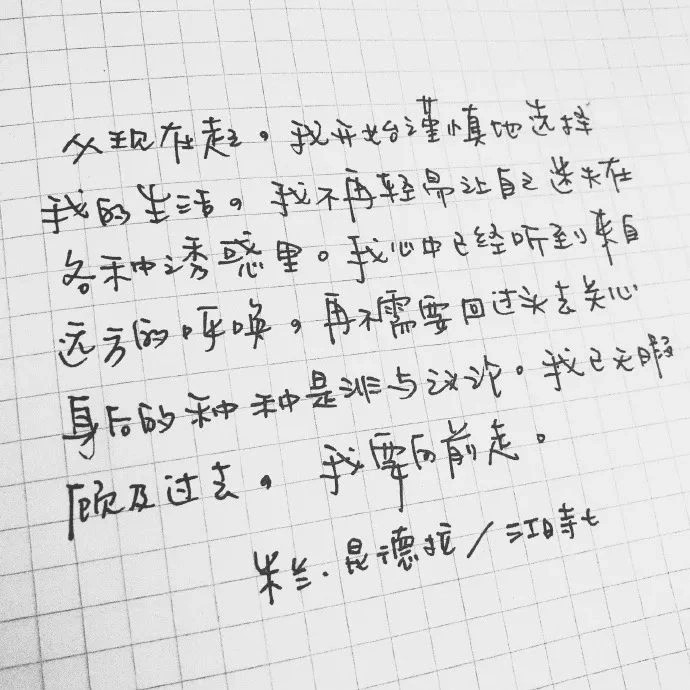 从现在起，我开始谨慎地选择
我的生活，我不再轻易让自己迷失在
各种诱惑里。我心中已经听到来自
远方的呼唤，再不需要回过头去关心
身后的种种是非与议论。我已无暇
顾及过去，我要向前走。
米兰·昆德拉／